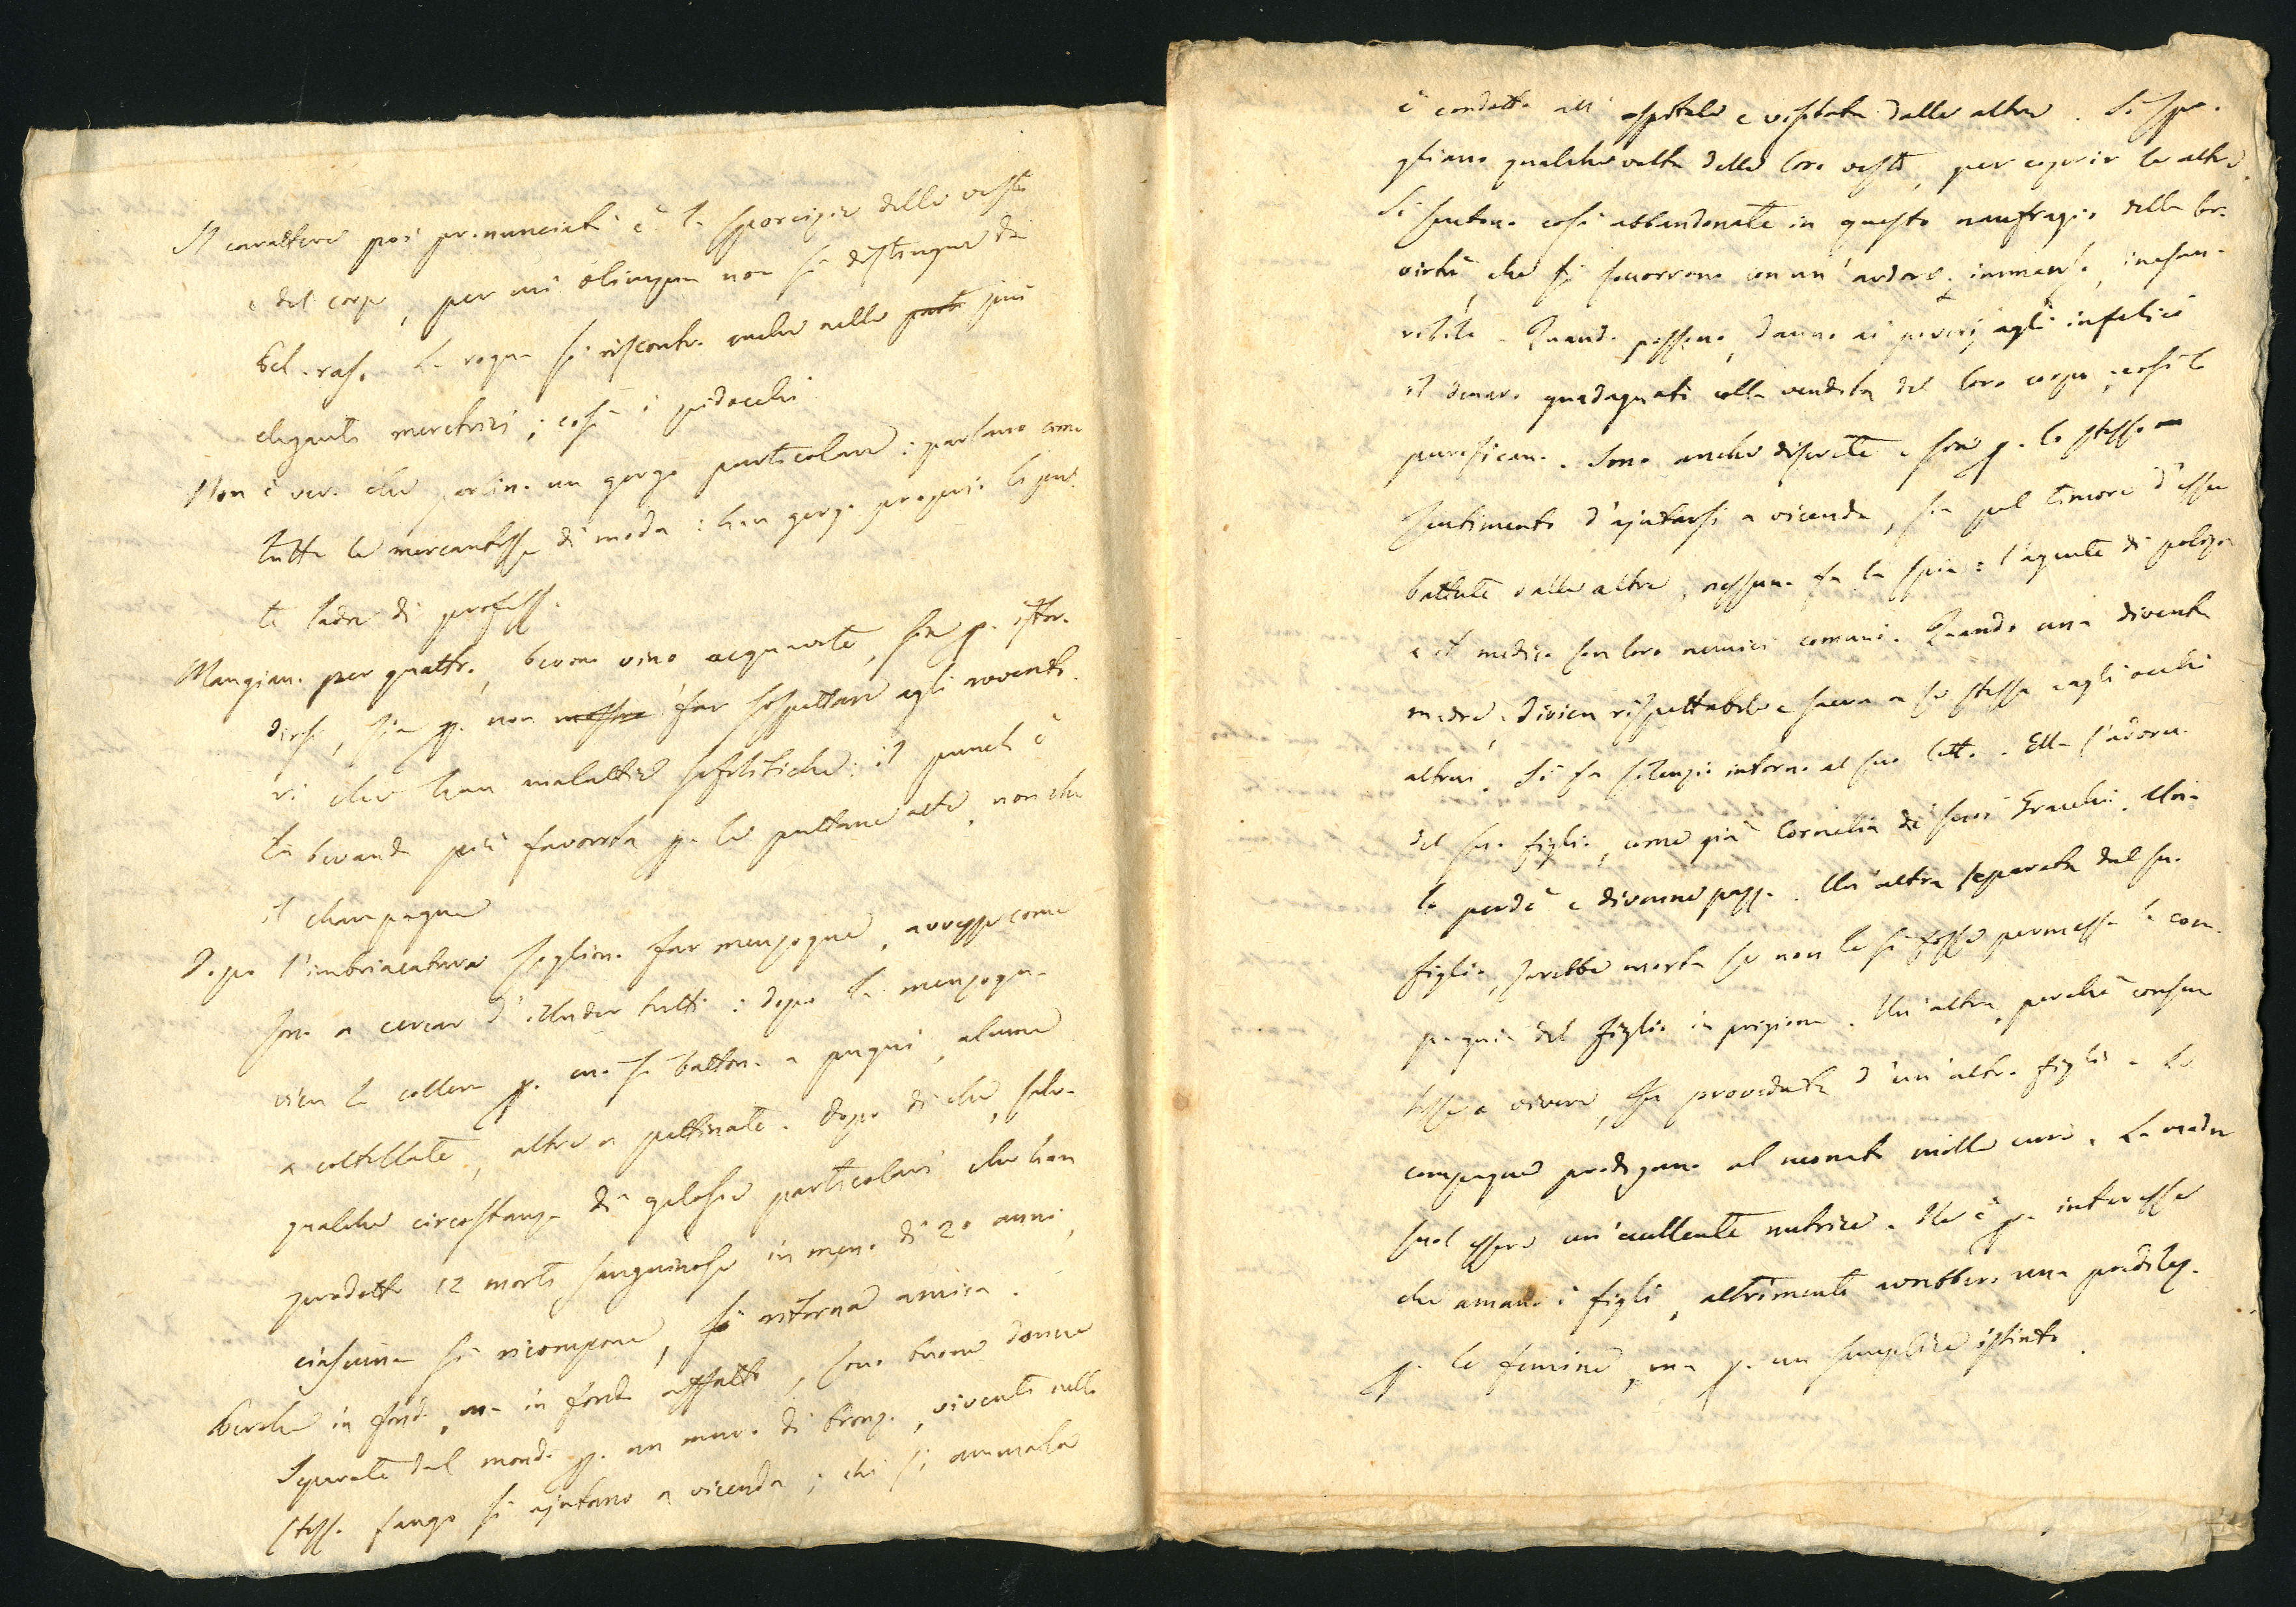 Il carattere più pronunciato è la sporcizie delle vesti
e del corpo, per cui Olimpia non si distingue da
Bel-raso. La rogna si riscontra anche nelle più
eleganti meretrici; così i pidocchi.
Non è vero che parlino un gergo particolare: parlano come
tutte le mercantesse di moda: han gergo proprio le pu
te ladre di profess.
Mangiano per quattro, bevono vino acquavite, sia p. istor-
dirsi, sia p. non far sospettare agli avvento-
ri che han malattie sifilitiche: il punch è
la bevanda più favorita p. le puttane alte, non che
il champagne
Dopo l'imbriacatura sogliono far menzogne, avvezze come
sono a cercar d'illuder tutti: dopo la menzogna
vien la collera p. cui si battono a pugni, alcune
a coltellate, altre a pettinate. Dopo di che, salvo
qualche circostanza di gelosie particolari che han
prodotto 12 morti sanguinose in meno di 20 anni,
ciascuna si ricompone, si ritorna amica.
Perche in fondo, ma in fondo affatto, sono buone donne
Separate dal mondo p. un muro di bronzo, viventi nello
stesso fango si ajutano a vicenda; chi si ammala
è condotta all'ospitale e visitata dalle altre. Si spo-
gliano qualche volta delle loro vesti, per coprir le altre.
Si sentono così abbandonate in questo naufragio della loro
virtù, che si soccorrono con un'ardore immenso, inesau-
ribile. Quando possono, danno ai poveri, agli infelici
il denaro guadagnato colla vendita del loro corpo; così lo
purificano. Sono anche discrete e sia p. lo stesso
sentimento d'ajutarsi a vicenda, sia pel timore d'esser
battute dalle altre, nessuna fa la spia: l'agente di polizia
e il medico son loro nemici comuni. Quando una diventa
madre, divien rispettabile e sacra a se stessa e agli occhi
altrui. Si fa silenzio intorno al suo letto. Ella s'adorna
del suo figlio, come già Cornelia de' suoi Gracchi. Una
lo perdè e divenne pazza. Un'altra separata dal suo
figlio, sarebbe morta se non le si fosse permessa la com-
pagnia del figlio in prigione. Un'altra, perchè consen
tisse a vivere, fu proveduta d'un'altro figlio. Le
compagne prodigano al neonato mille cure. La madre
suol essere un'eccellente nutrice. Ne è p. interesse
che amano i figli, altrimenti avrebbero una predilez.
p. le femine, ma p. un semplice istinto.